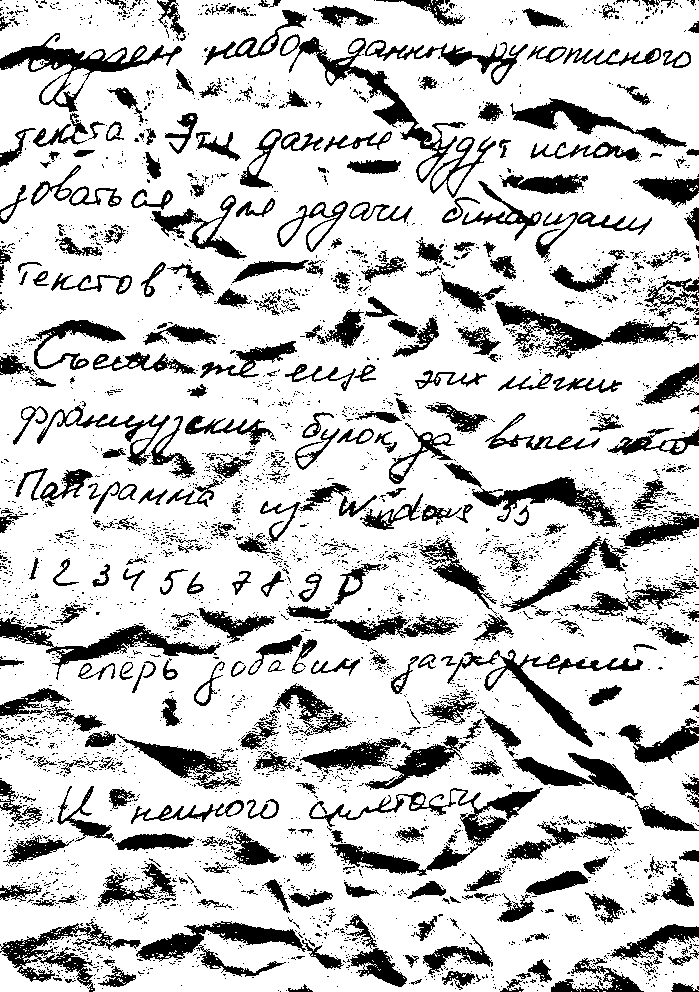 Создаем набор данных рукописного
текста. Эти данные будут исполь-
зоваться для задачи бинаризации
текстов
Съешь же ещё этих мягких
французских булок, да выпей чаю
Панграмма из Windows 95
1 2 3 4 5 6 7 8 9 0
Теперь добавим загрязнений.
И немного смятости